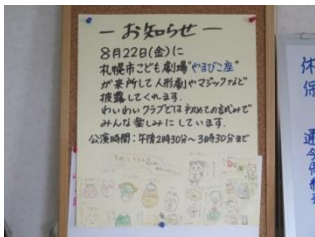 ーお知らせー
8月22日(金)に
札幌市こども劇場"やまびこ座"
が来所して人形劇やマジックなど
披露してくれます。
わいわいクラブとは初めての試みで
みんな楽しみにしています。
公演時間:午後2時30分~3時30分まで
休
保